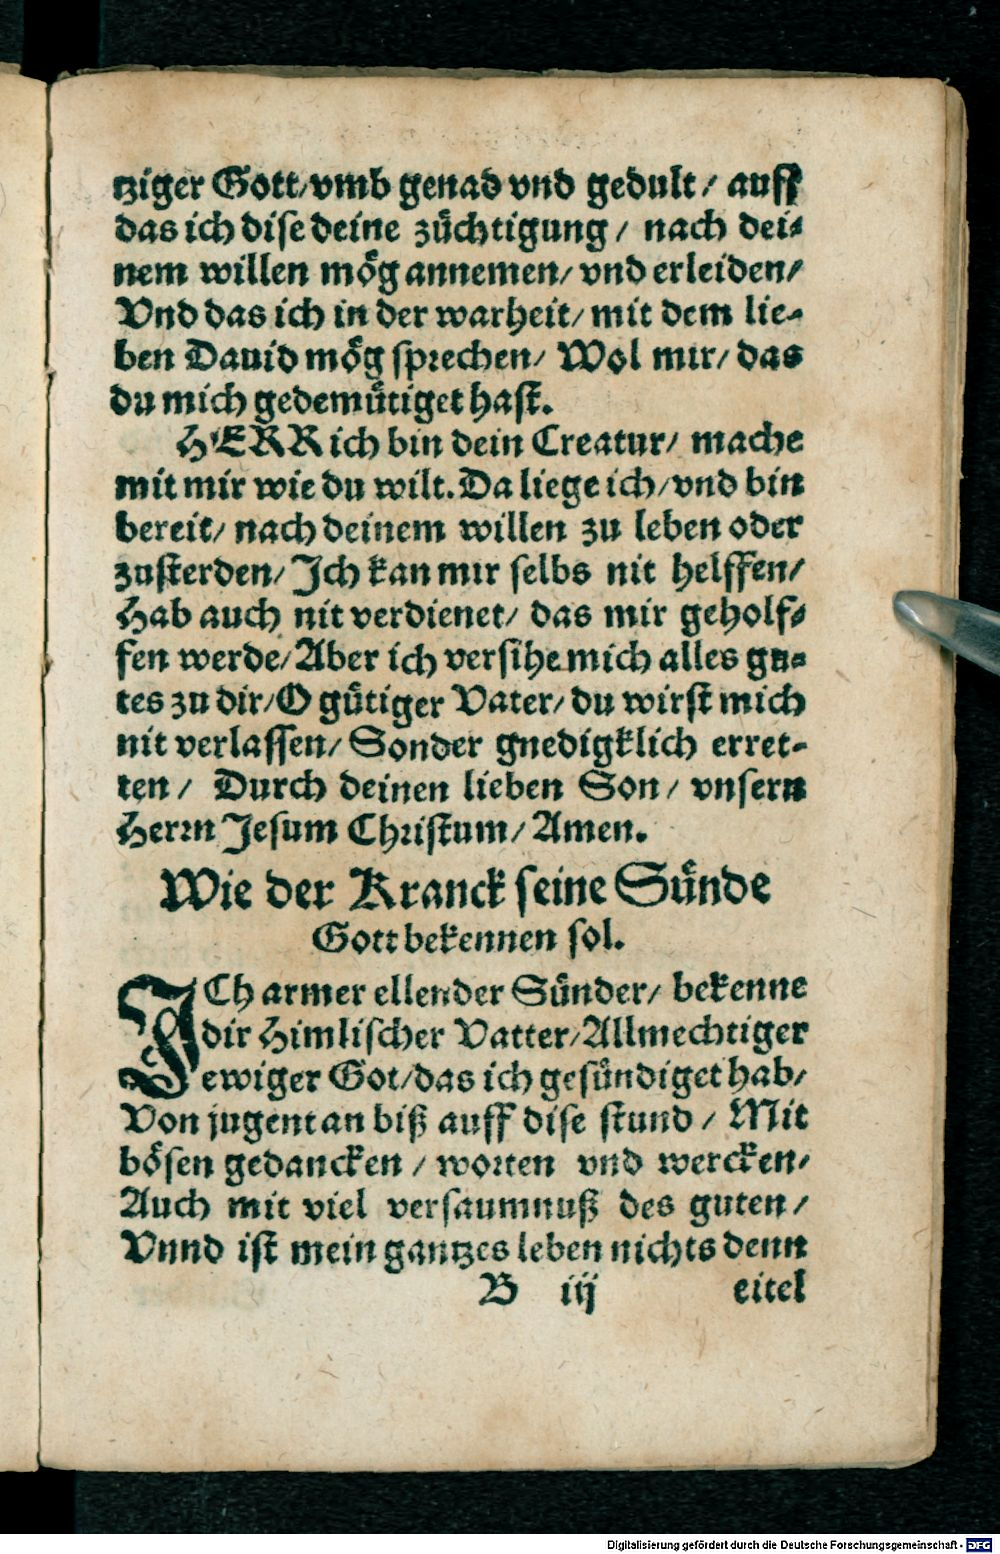 tziger Gott/vmb genad vnd gedult / auff
das ich dise deine züchtigung / nach dei-
nem willen mög annemen/ vnd erleiden/
Vnd das ich in der warheit/ mit dem lie-
ben Dauid mög sprechen/ Wol mir/ das
du mich gedemütiget hast.
HERR ich bin dein Creatur/ mache
mit mir wie du wilt. Da liege ich/vnd bin
bereit/ nach deinem willen zu leben oder
zusterben/ Ich kan mir selbs nit helffen/
Hab auch nit verdienet/ das mir geholf-
fen werde/ Aber ich versihe mich alles gu-
tes zu dir/ O gütiger Vater/ du wirst mich
nit verlassen/ Sonder gnedigklich erret-
ten / Durch deinen lieben Son / vnsern
Herrn Jesum Christum/ Amen.
Wie der Kranck seine Sünde
Gott bekennen sol.
ICh armer ellender Sünder/ bekenne
dir Himlischer Vatter/Allmechtiger
ewiger Got/das ich gesündiget hab/
Von jugent an biß auff dise stund / Mit
bösen gedancken / worten vnd wercken/
Auch mit viel versaumnuß des guten/
Vnnd ist mein gantzes leben nichts denn
B iij eitel
Digitalisierung gefördert durch die Deutsche Forschungsgemeinschaft - DFG